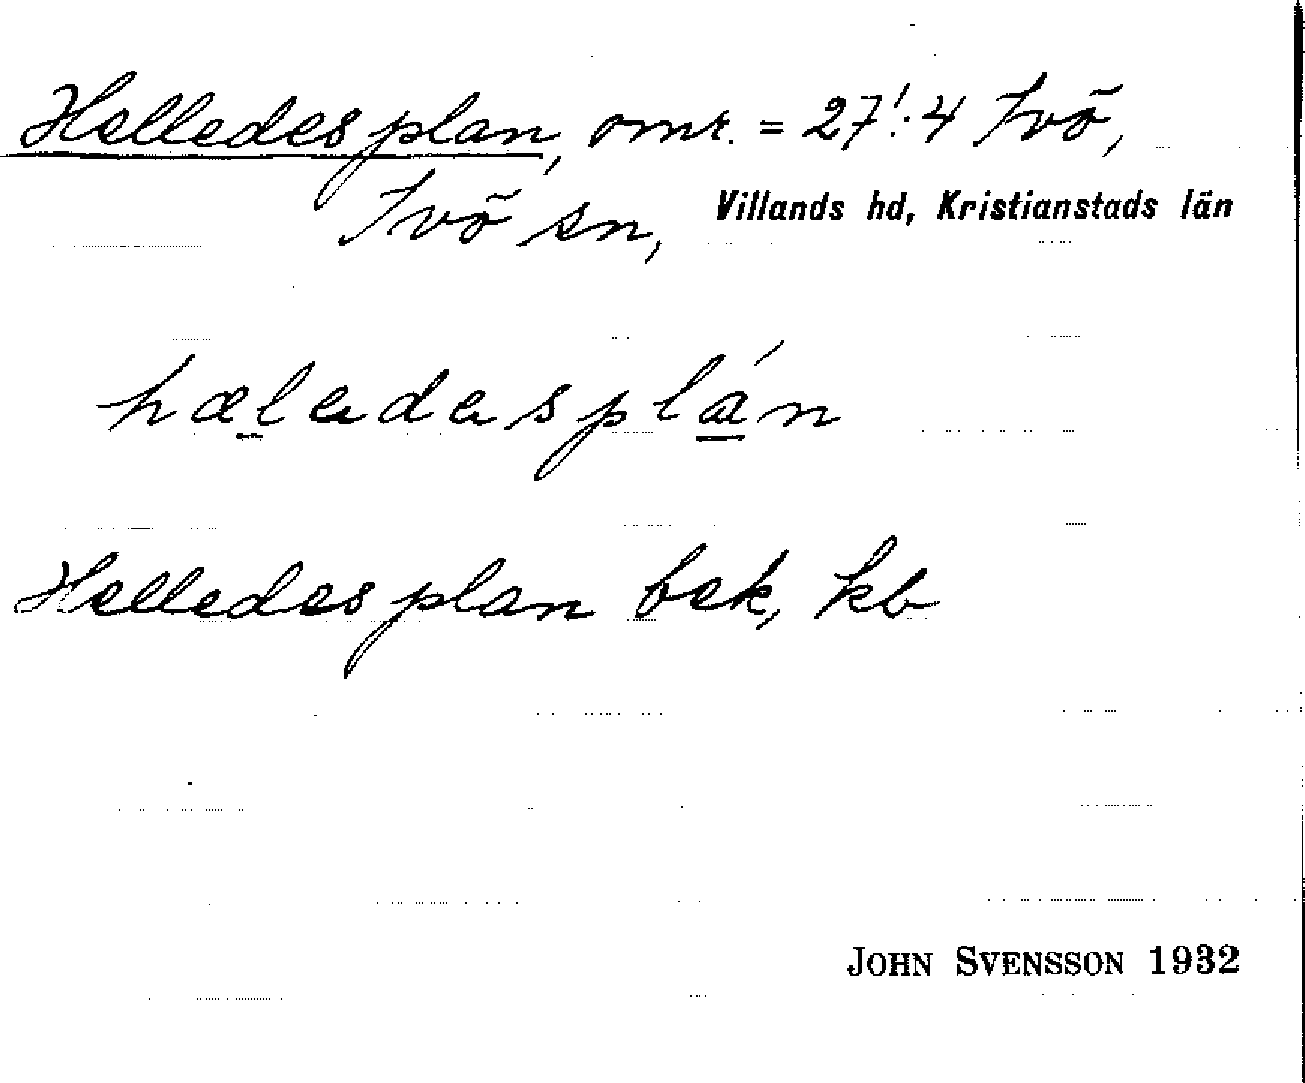 Helledesplan, omr. = 27!.4 Ivö,
Ivö sn, Villands hd, Kristianstads län
Helledesplan bek, kb
JOHN SVENSSON 1932